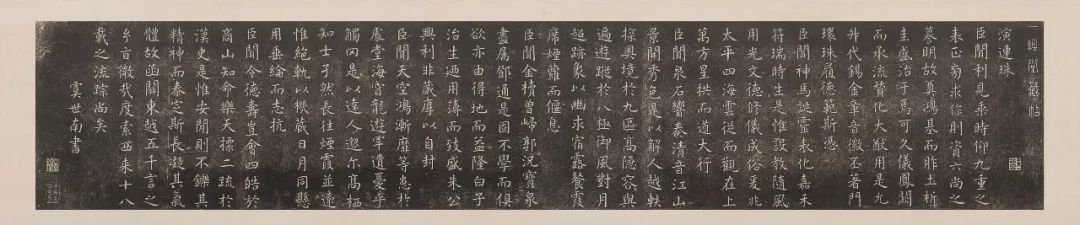 演連珠
臣聞利見乘時仰九重之
表正芻求徐則資六尚之
慕明故真鴻基而胙土析
圭盛冶子焉可久儀鳳闕
而承流贊化大猷用是允
升代錫金章音徽丕著門
環珠履德範斯懋
臣聞神馬誕靈表化嘉禾
符瑞時生惟設教隨風
用光文德修儀成俗爰兆
太平四海雲從而觀在上
萬方星拱而道大行
臣聞泉石響奏清音江山
景開秀色是以解人越軼
探奧境於九區高隱容與
遍遊蹤於八極御風對月
超跡象以幽求宿露餐霞
席煙蘿而偃息
臣聞金積曾歸郭況寶泉
盡屬鄧通是固不學而俱
欲亦由得地而益隆白子
治生迺用薄而致盛朱公
興利非藏厚以自封
臣聞天空鴻漸靡等惠於
處堂海官龍遊罕遺憂乎
觸罔是以達人遐尓高栖
知士孑然長往煙霞並遠
惟絶軌以機藏日月同懸
用垂綸而志抗
臣聞令德壽豈會四皓於
商山知命樂天標二疏於
漢史是惟安閒則不鑠其
精神而泰定斯長凝其氣
體故函關東越五千言之
𤣥言儆哉度索西來十八
載之流踪尚矣
虞世南書